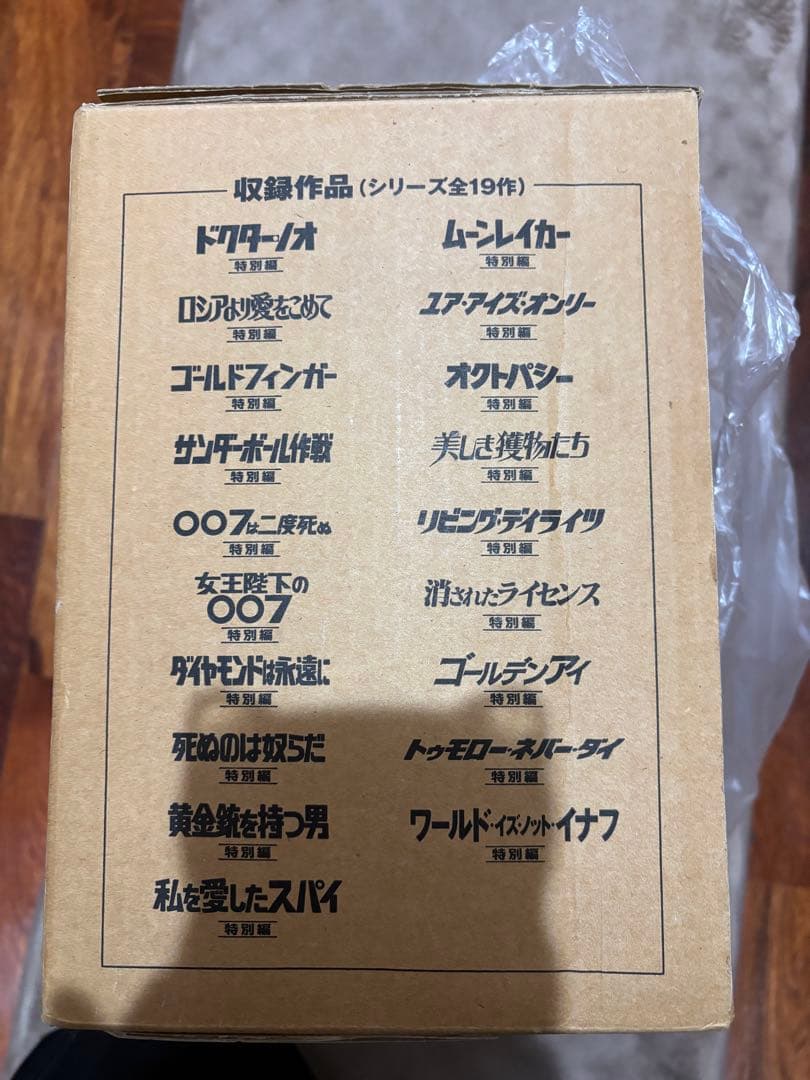 収録作品(シリーズ全19作)
ドクター・ノオ
特別編
ロシアより愛をこめて
特別編
ゴールドフィンガー
特別編
サンダーボール作戦
特別編
007は二度死ぬ
特別編
女王陛下の
007
特別編
ダイヤモンドは永遠に
特別編
死ぬのは奴らだ
特別編
黄金銃を持つ男
特別編
私を愛したスパイ
特別編
ムーンレイカー
特別編
ユア・アイズ・オンリー
特別編
オクトパシー
特別編
美しき獲物たち
特別編
リビング・デイライツ
特別編
消されたライセンス
特別編
ゴールデンアイ
特別編
トゥモロー・ネバー・ダイ
特別編
ワールド・イズ・ノット・イナフ
特別編